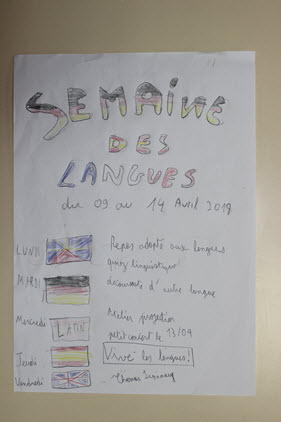 SEMAINE
DES
LANGUES
du 09 au 14 Avril 2018
LUNDI
Repas adapté aux langues
quizz linguistique
MARDI
découverte d'autre langue
Mercredi
LATIN
Atelier projection
petit concert le 13/04
Jeudi
Vive les langues!
Vendredi
Thomas